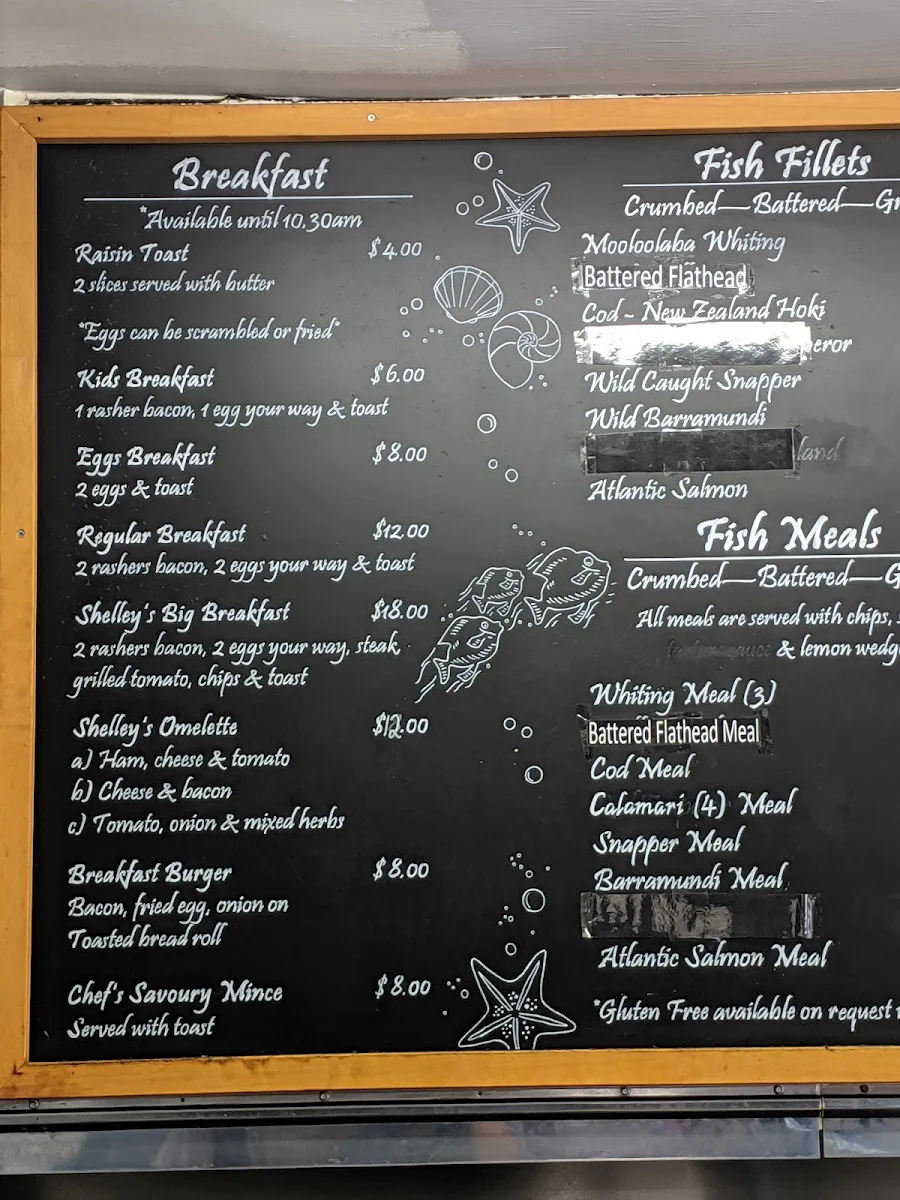 Breakfast
*Available until 10.30am
Raisin Toast $4.00
2 slices served with butter
*Eggs can be scrambled or fried*
Kids Breakfast $6.00
1 rasher bacon, 1 egg your way & toast
Eggs Breakfast $8.00
2 eggs & toast
Regular Breakfast $12.00
2 rashers bacon, 2 eggs your way & toast
Shelley's Big Breakfast $18.00
2 rashers bacon, 2 eggs your way, steak,
grilled tomato, chips & toast
Shelley's Omelette $12.00
a) Ham, cheese & tomato
b) Cheese & bacon
c) Tomato, onion & mixed herbs
Breakfast Burger $8.00
Bacon, fried egg, onion on
Toasted bread roll
Chef's Savoury Mince $8.00
Served with toast
Fish Fillets
Crumbed—Battered—Gr
Mooloolaba Whiting
Battered Flathead
Cod ~ New Zealand Hoki
eror
Wild Caught Snapper
Wild Barramundi
land
Atlantic Salmon
Fish Meals
Crumbed—Battered—G
All meals are served with chips,
& lemon wedg
Whiting Meal (3)
Battered Flathead Meal
Cod Meal
Calamari (4) Meal
Snapper Meal
Barramundi Meal
Atlantic Salmon Meal
*Gluten Free available on request